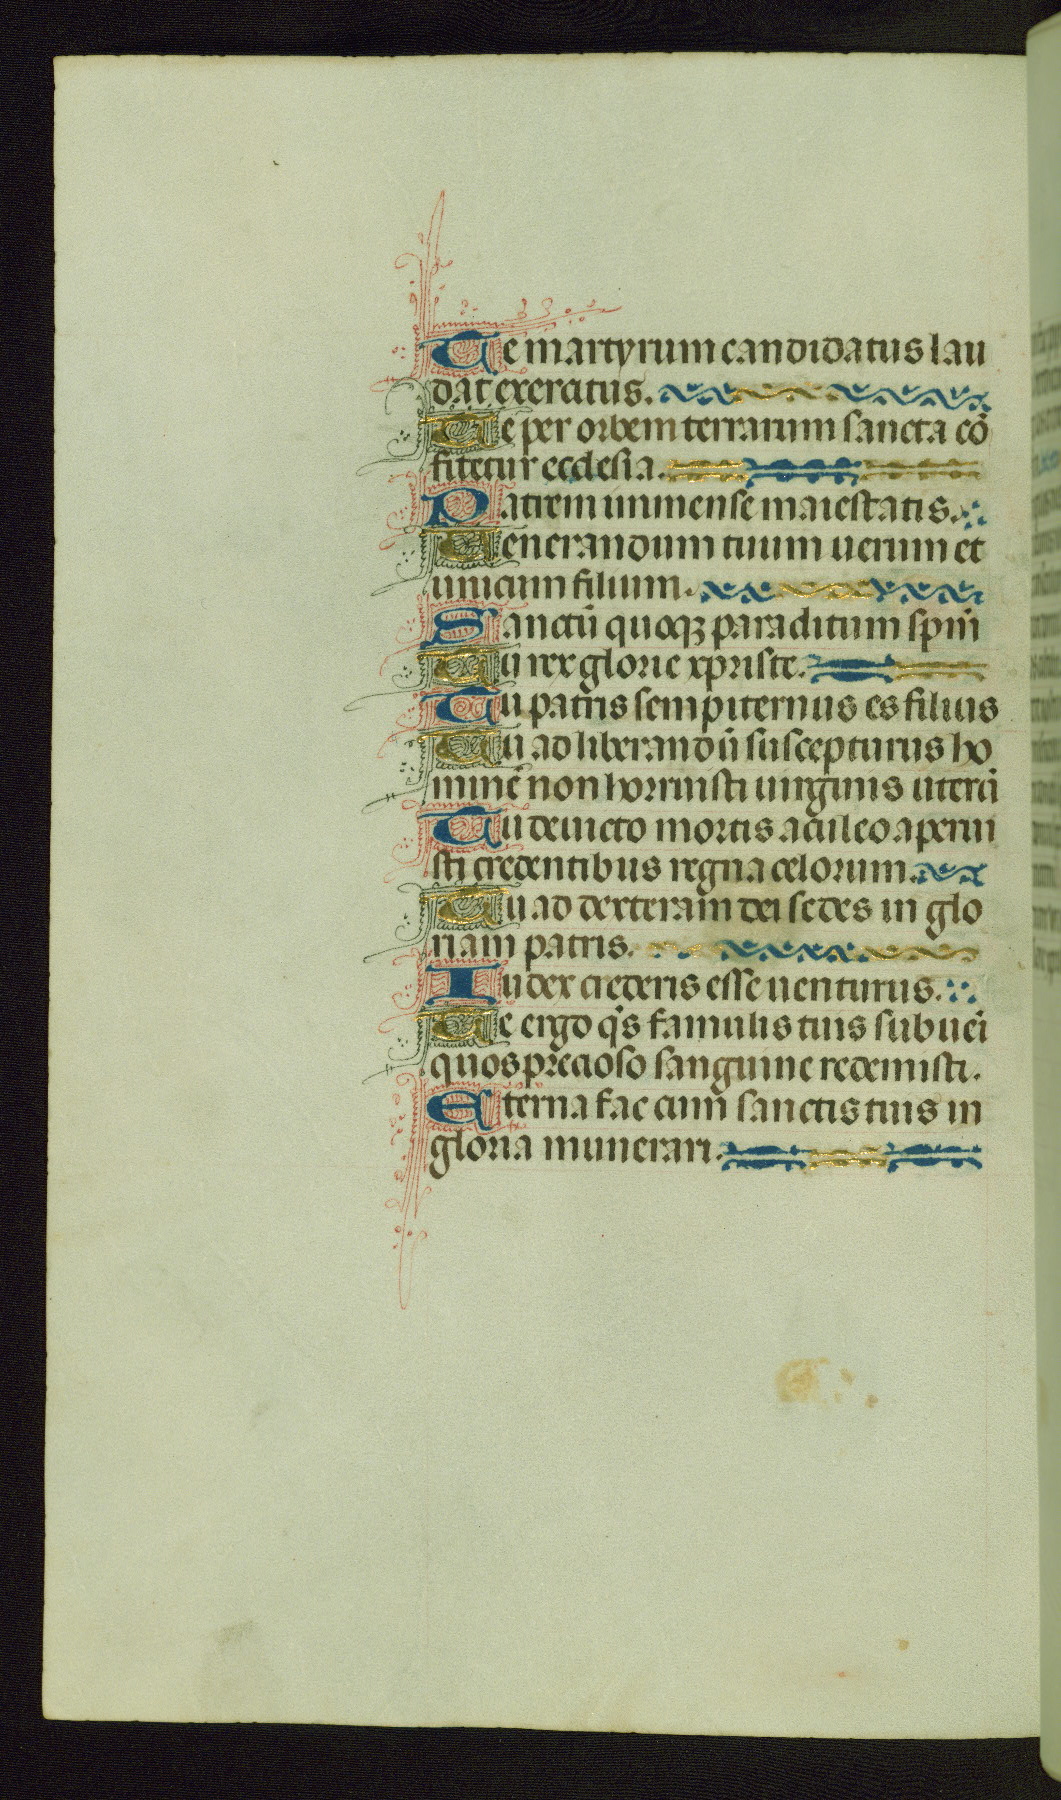 Te martyrum candidatus lau
dat exercitus.
Te per orbem terrarum sancta cō
fitetur ecclesia.
Patrem inmense maiestatis.
Venerandum tuum uerum et
unicum filium.
Sanctū quoqꝫ paraclitum spm̄
Tu rex glorie xpriste.
Tu patris sempiternus es filius
Tu ad liberandū suscepturus ho
minē non horruisti uirginis uterū
Tu deuicto mortis aculeo aperui
sti credentibus regna celorum.
Tu ad dexteram dei sedes in glo
riam patris.
Iudex crederis esse uenturus.
Te ergo q̄s famulis tuis subuei̇
quos precioso sanguine redemisti.
Eterna fac cum sanctis tuis in
gloria munerari.